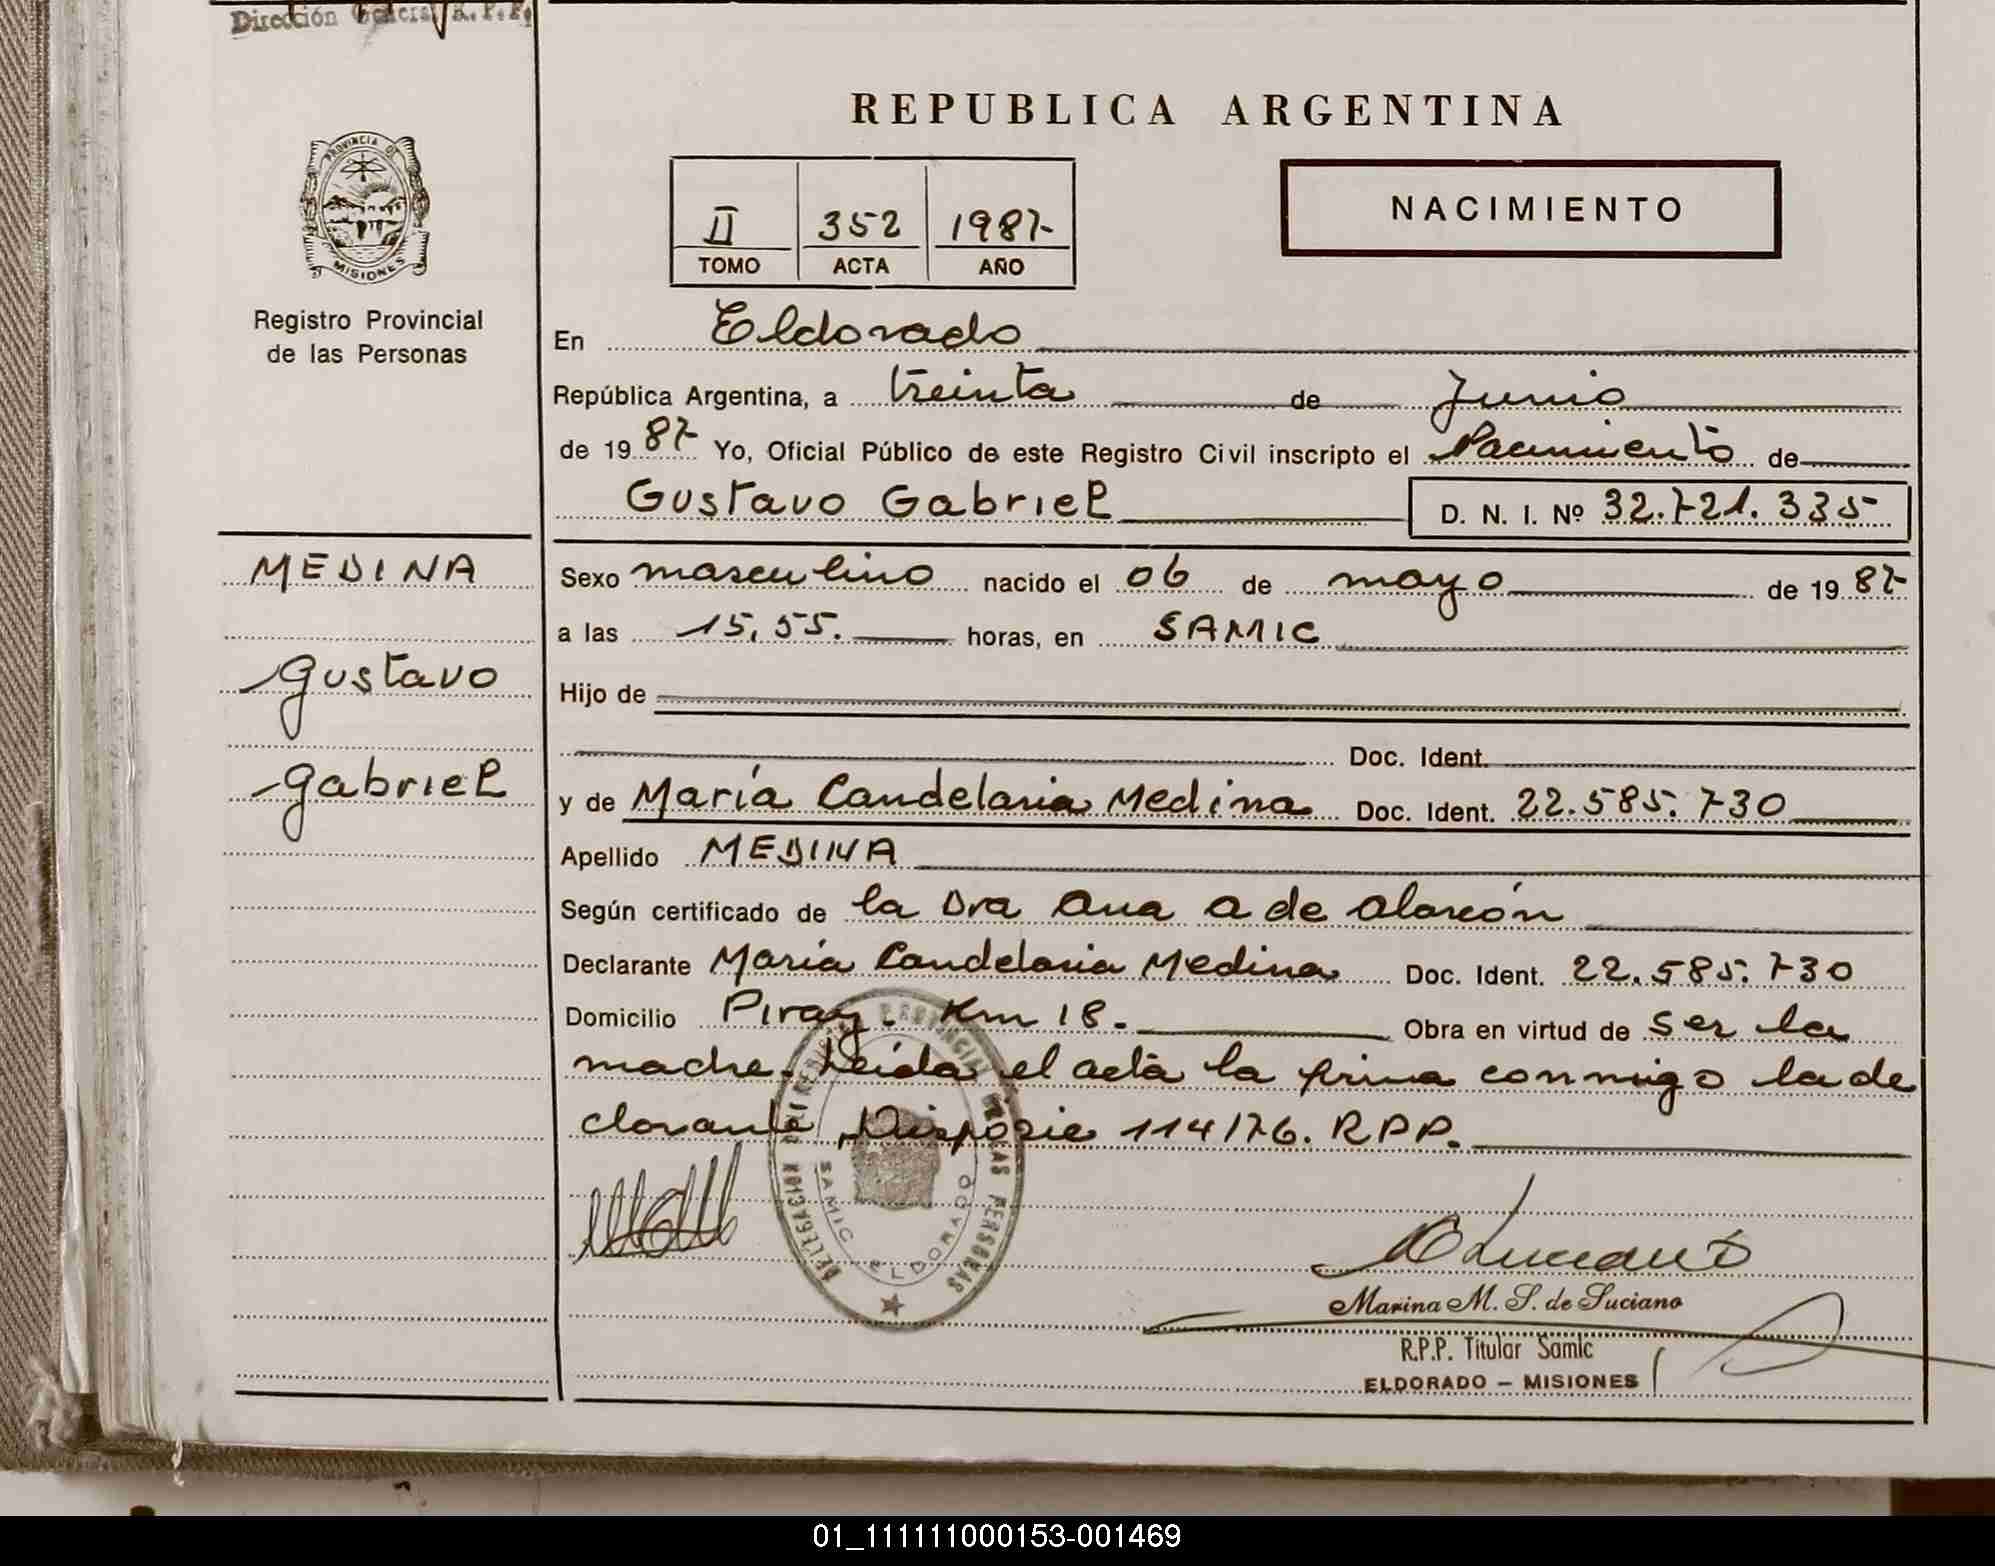 Dirección General R. P. P.
REPUBLICA ARGENTINA
PROVINCIA DE
MISIONES
Registro Provincial
de las Personas
II 352 1987
TOMO ACTA AÑO
NACIMIENTO
En Eldorado
República Argentina, a treinta de Junio
de 1987 Yo, Oficial Público de este Registro Civil inscripto el Nacimiento de
Gustavo Gabriel D. N. I. Nº 32.721.335
MEDINA
Gustavo
Gabriel
Sexo masculino nacido el 06 de mayo de 1987
a las 15,55. horas, en SAMIC
Hijo de
Doc. Ident.
y de María Candelaria Medina Doc. Ident. 22.585.730
Apellido MEDINA
Según certificado de la Dra Ana A de Alarcón
Declarante María Candelaria Medina Doc. Ident. 22.585.730
Domicilio Piray. Km 18. Obra en virtud de ser la
madre. Leída el acta la firma conmigo la de
clarante Disposic 114/76. R.P.P.
PROVINCIAL DE LAS PERSONAS
SAMIC ELDORADO
Marina M. S. de Luciano
R.P.P. Titular Samic
ELDORADO – MISIONES
01_111111000153-001469